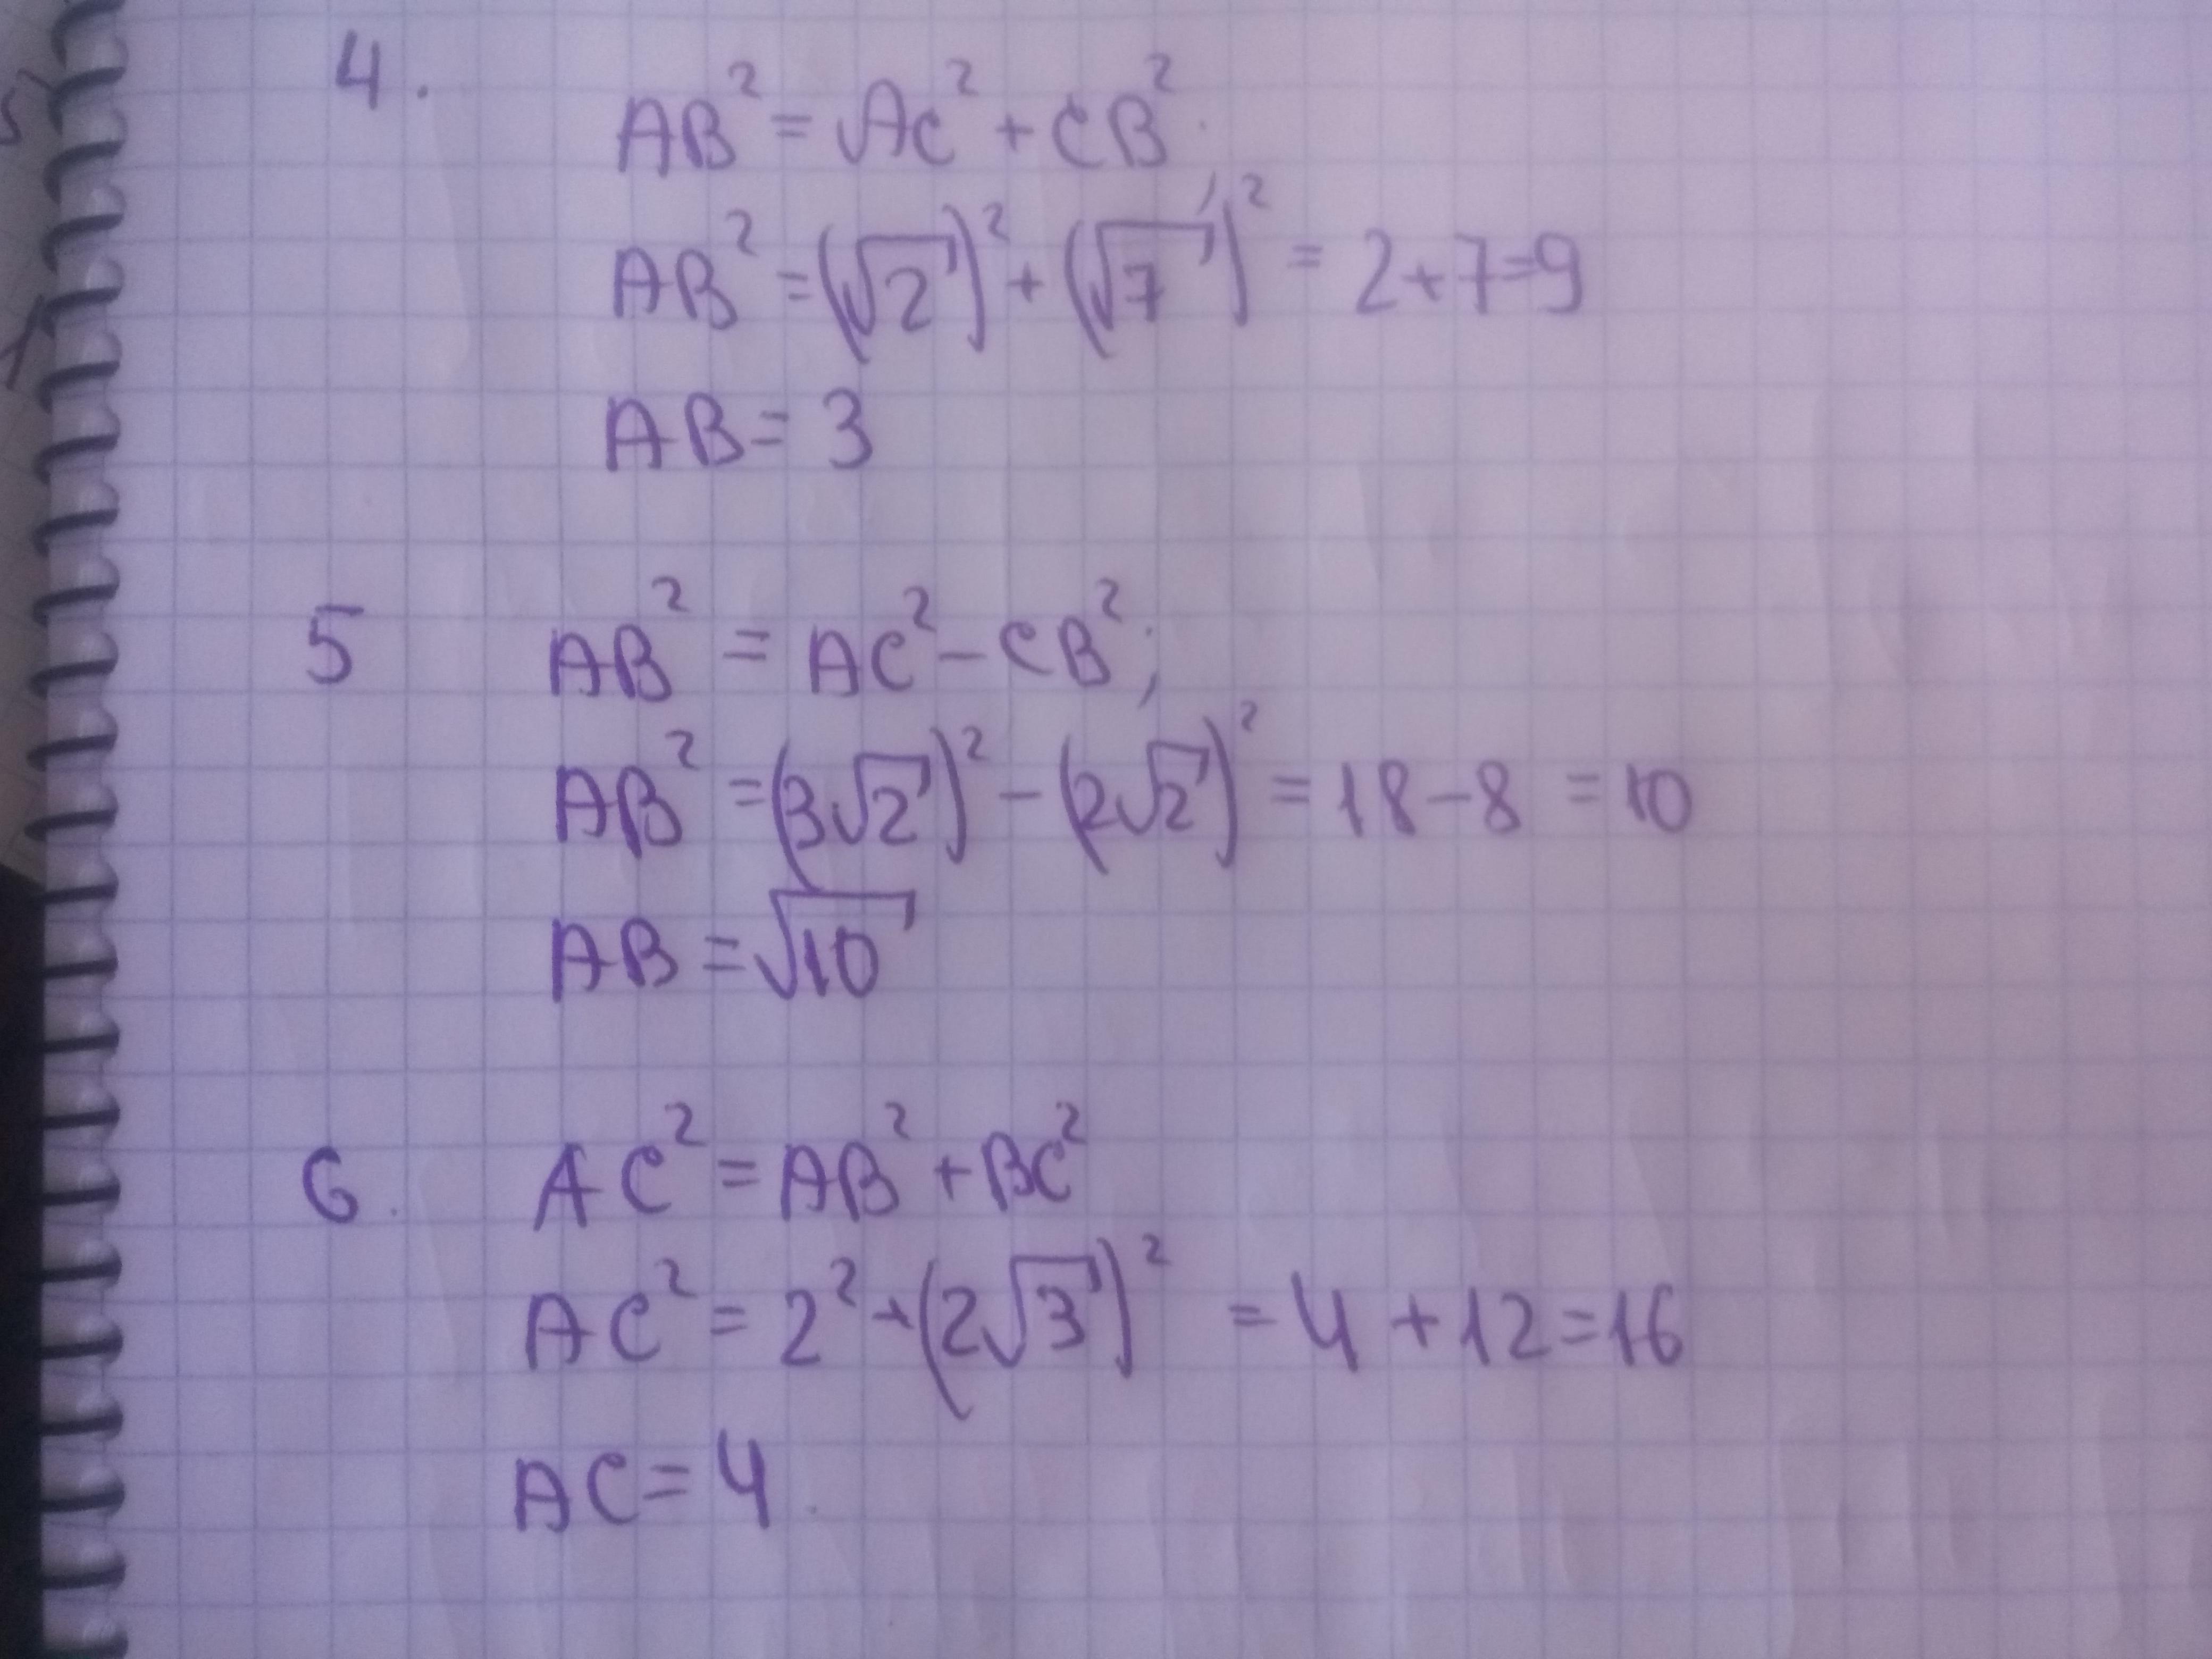 4.
AB² = AC² + CB²
AB² = (√2)² + (√7)² = 2+7=9
AB = 3
5 AB² = AC² - CB²;
AB² = (3√2)² - (2√2)² = 18-8 = 10
AB = √10
6. AC² = AB² + BC²
AC² = 2² + (2√3)² = 4 + 12 = 16
AC = 4.